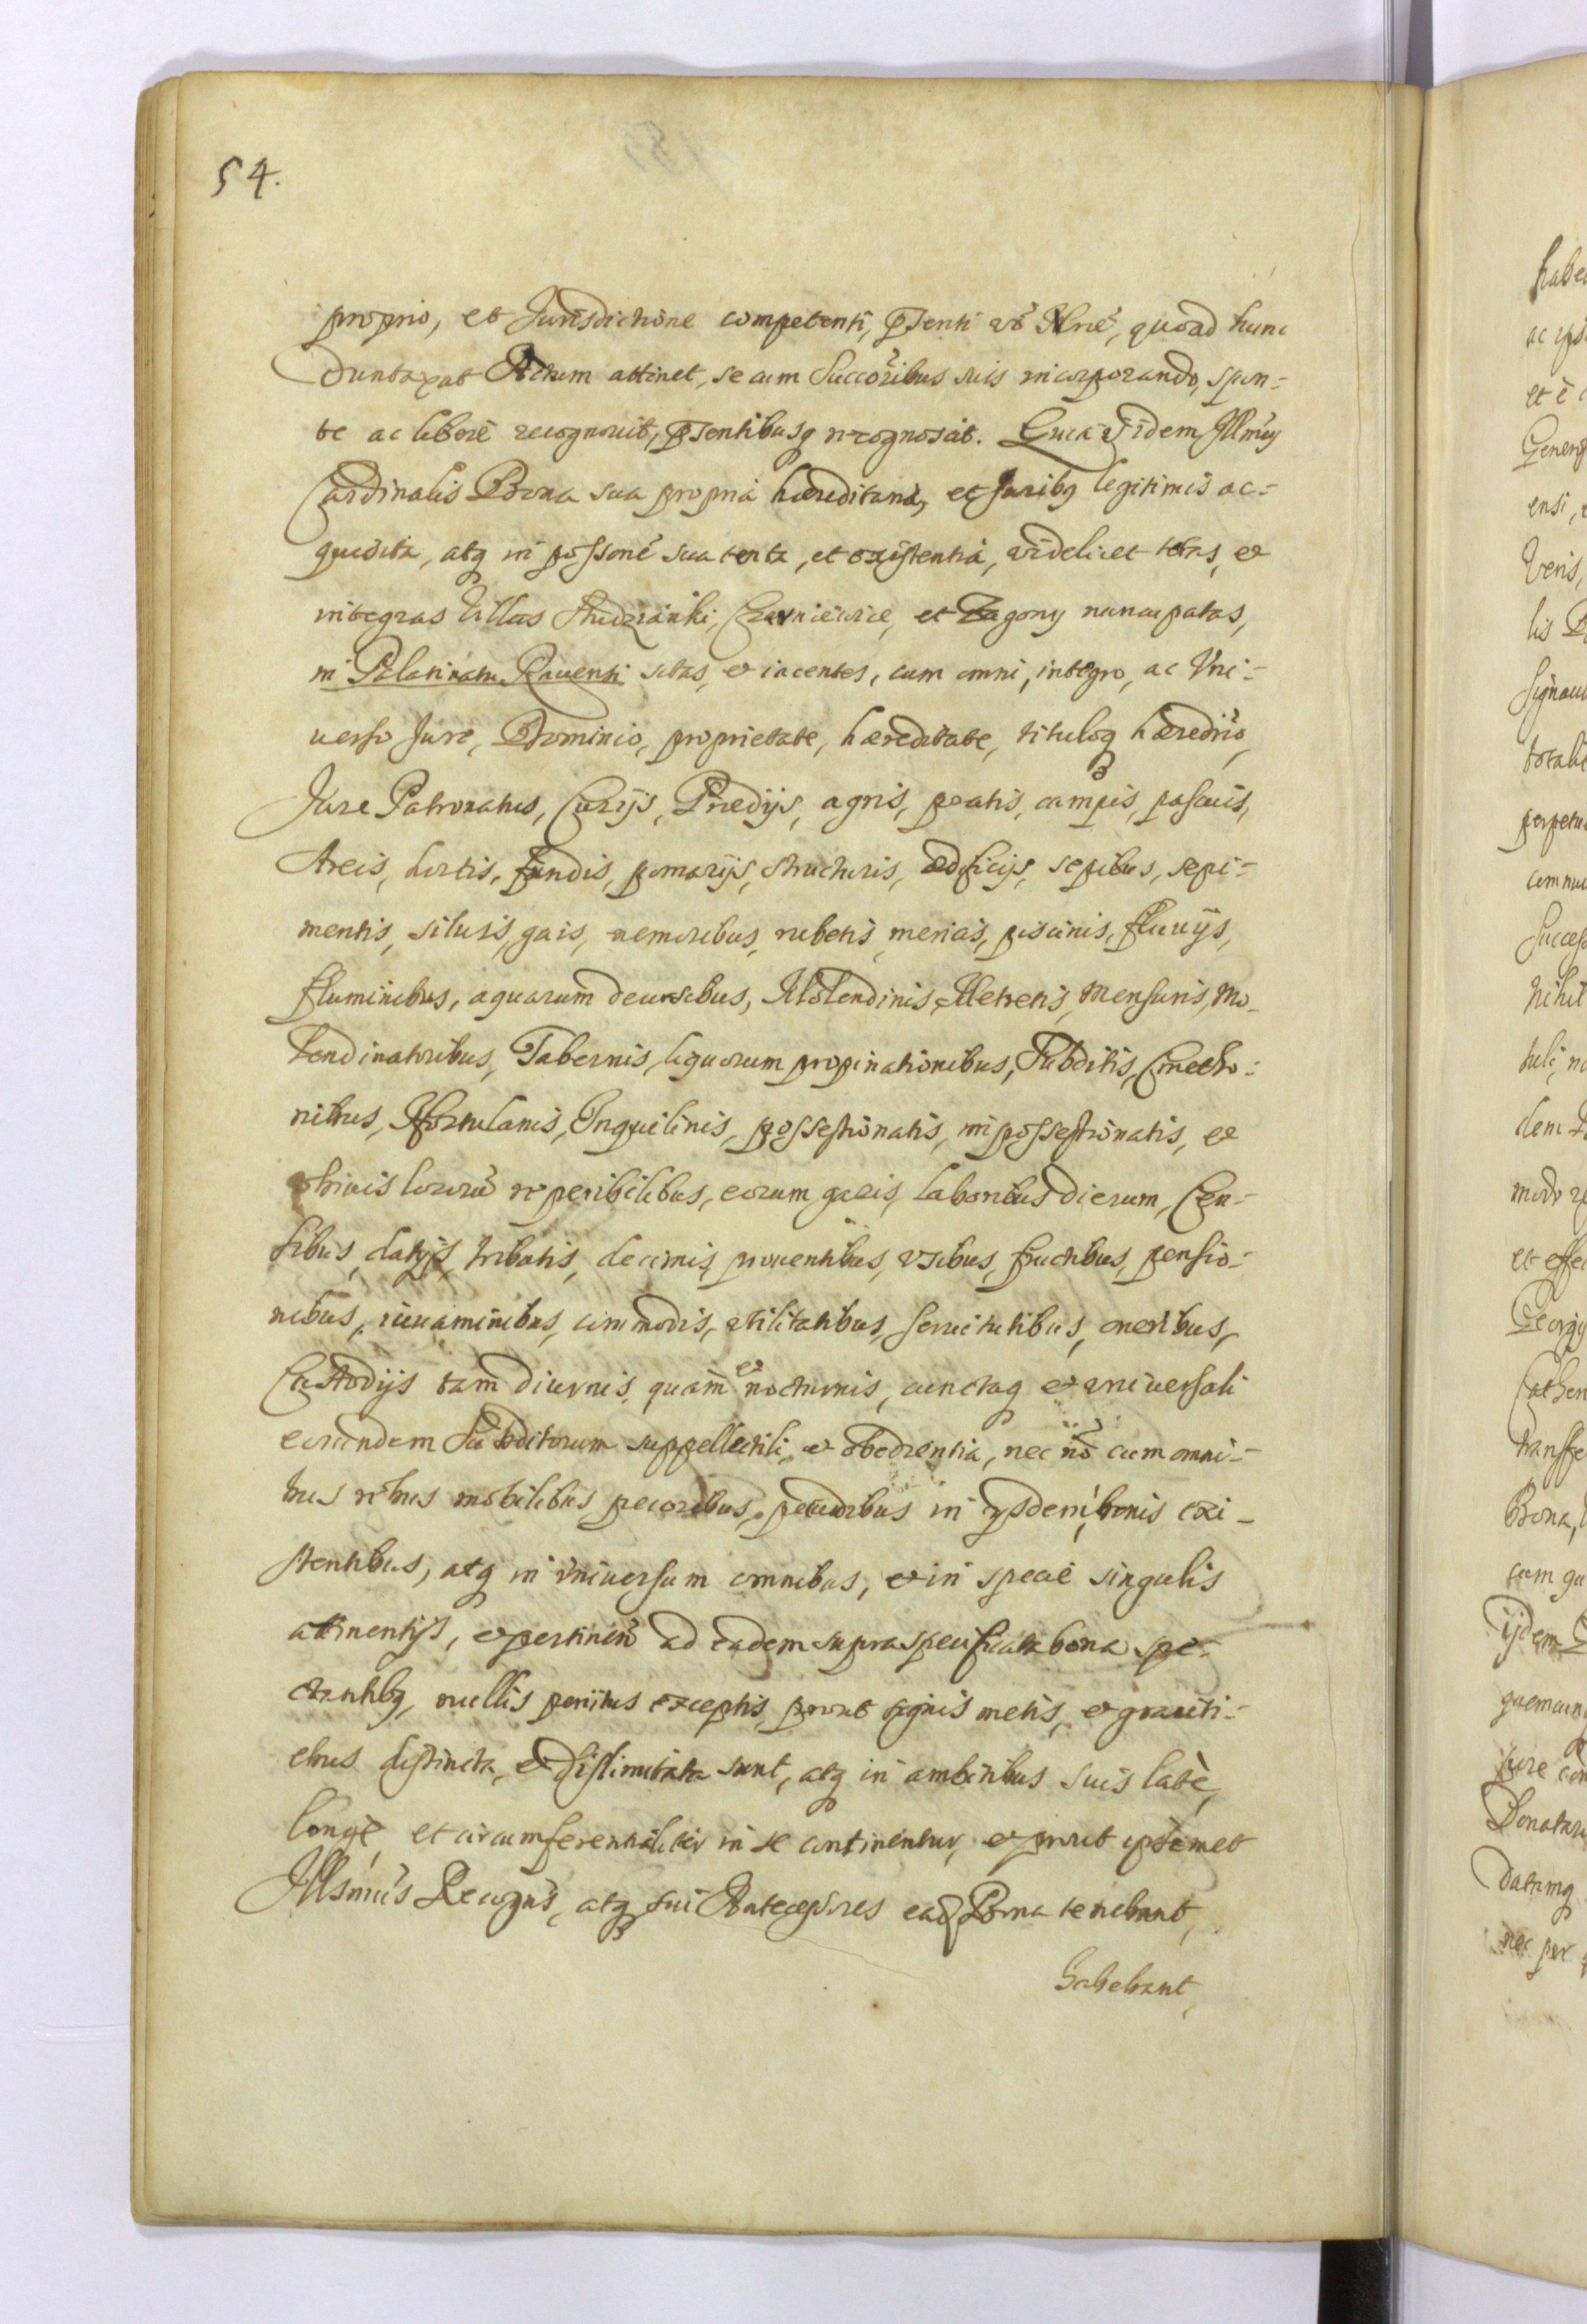 54.
proprio, et Jurisdictione competenti, pñsenti võ Alnẽ, quoad hunc
duntaxat Actum attinet, se cum Succõribus suis incorporando, spon-
te ac liberè recognovit, pñsentibusq recognoscit. Quia Idem Illmus
Cardinalis Bona sua propria hæreditaria, et Juribq legitimis ac-
quisita, atq in possonẽ sua tenta, et existentia, videlicet totas, et
integras Villas Studzianki, Czerniewice, et Zagony nuncupatas,
in Palatinatu Rauensi sitas, et iacentes, cum omni, integro, ac Vni-
uerso Jure, Dominio, proprietate, hæreditate, tituloq hæredrio,
Jure Patronatus, Curijs, Prædijs, agris, pratis, campis, pascuis,
Areis, hortis, fundis, pomarijs, structuris, ædificijs, sepibus, sepi-
mentis, siluis, gais, nemoribus, rubetis, mericis, piscinis, fluuijs,
fluminibus, aquarum decursibus, Molendinis, Metretis, Mensuris, Mo-
lendinatoribus, Tabernis, liquorum propinationibus, Subditis, Cmetho-
nibus, Hortulanis, Inquilinis, possessionatis, impossessionatis, et
locorũ reperibilibus, eorum gazis, laboribus dierum, Cen-
sibus, datijs, tributis, decimis, prouentibus, vsibus, fructibus, pensio-
nibus, iuuaminibus, commodis, vtilitatibus, seruitutibus, oneribus,
Custodijs tam diurnis, quam et nocturnis, cunctaq et vniuersali
eorundem Subditorum suppellectili, et obedientia, nec nõ cum omni-
bus rebus mobilibus, pecoribus, pecudibus in ijsdem bonis exi-
stentibus, atq in vniuersum omnibus, et in specie singulis
attinentijs, et pertinen ad eadem supraspecificata bona spe-
ctantibq, nullis penitus exceptis, prout signis metis, et graniti-
ebus distincta, et dislimitata sunt, atq in ambitibus suis latè,
longè, et circumferentialiter in se continentur, et prout ipsemet
Illsmus Recogñs, atq sui Antecessores ead Bona tenebant,
habebant,